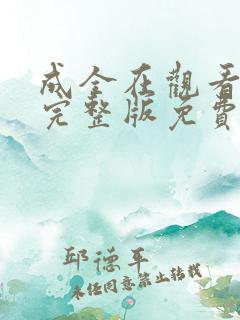 成全在觀看
完整版免費
邱德平
未经同意禁止转载